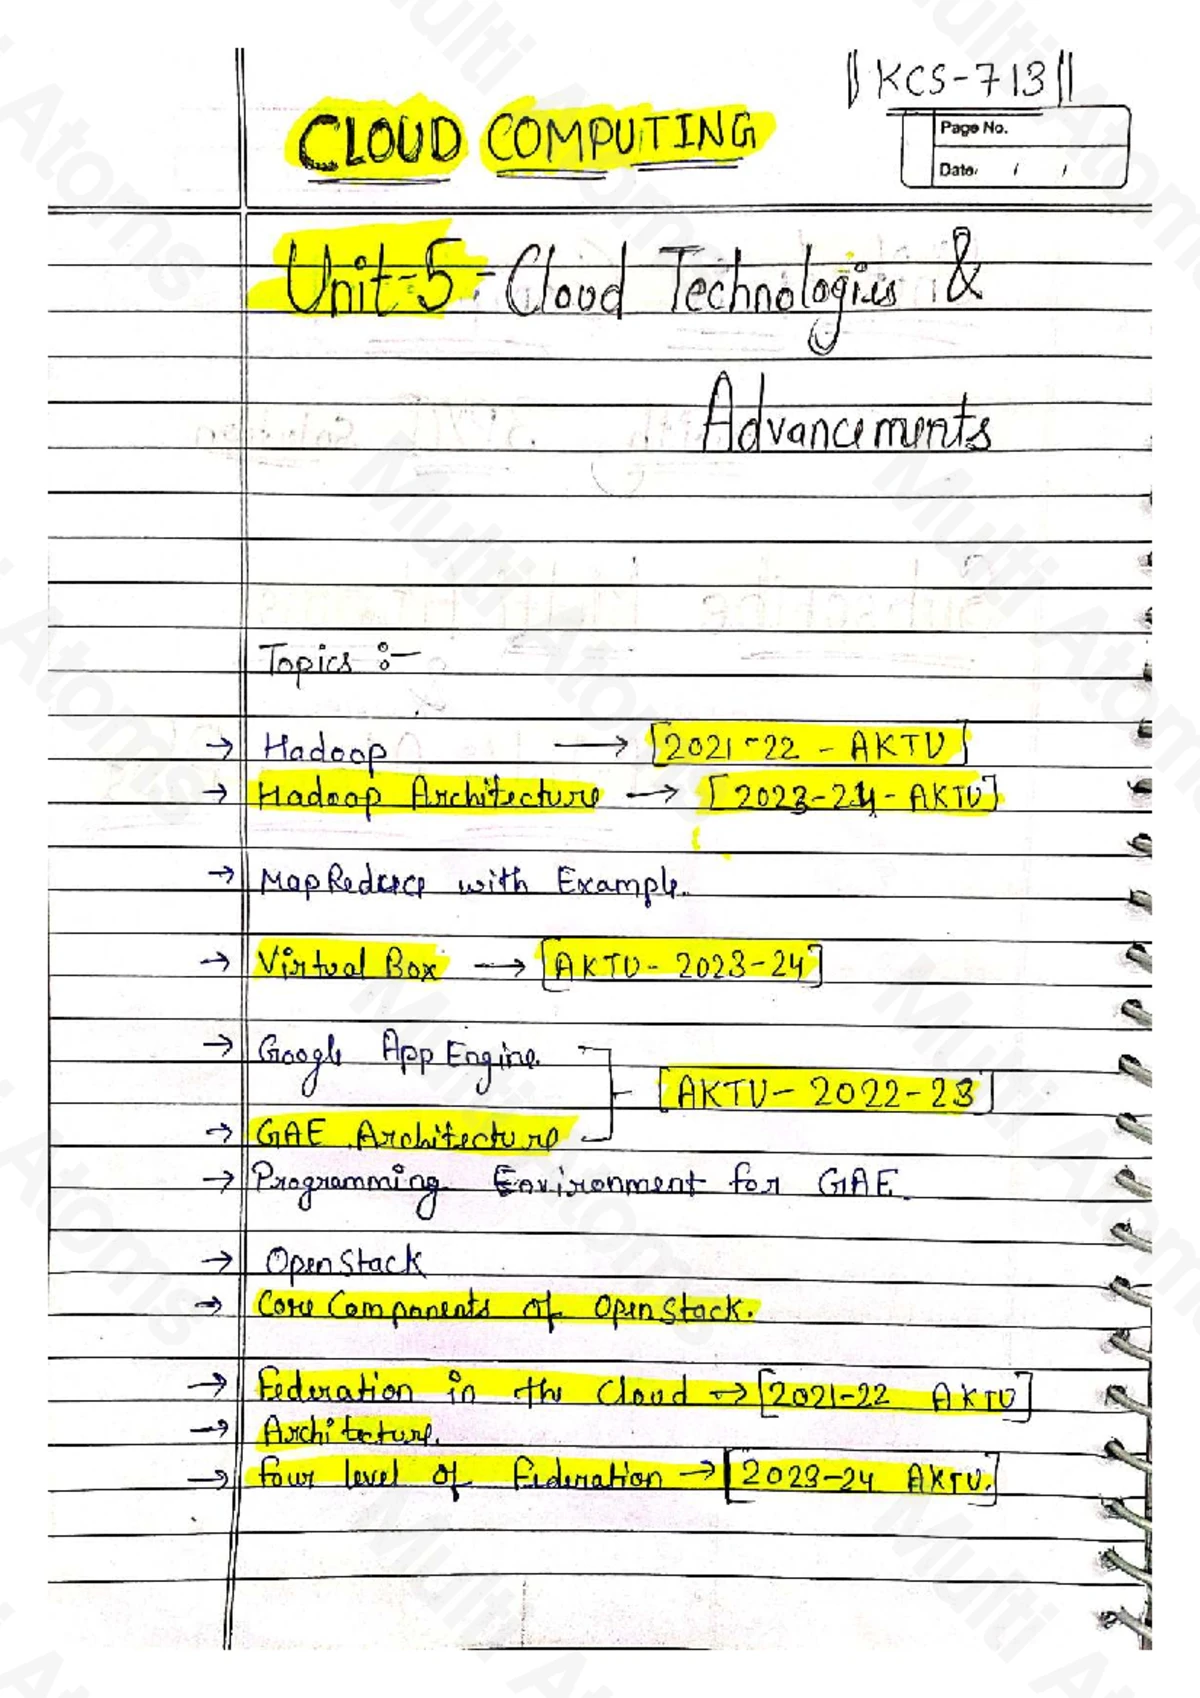 || KCS-713 ||
CLOUD COMPUTING
Page No.
Date: / /
Unit-5 - Cloud Technologies &
Advancements
Topics :-
→ Hadoop → [2021-22 - AKTU]
→ Hadoop Architecture → [2023-24 - AKTU]
→ MapReduce with Example.
→ Virtual Box → [AKTU - 2023-24]
→ Google App Engine.
[AKTU - 2022-23]
→ GAE Architecture
→ Programming Environment for GAE.
→ OpenStack
→ Core Components of OpenStack.
→ Federation in the Cloud → [2021-22 AKTU]
→ Architecture.
→ four level of Federation → [2023-24 AKTU.]
Multi Atoms